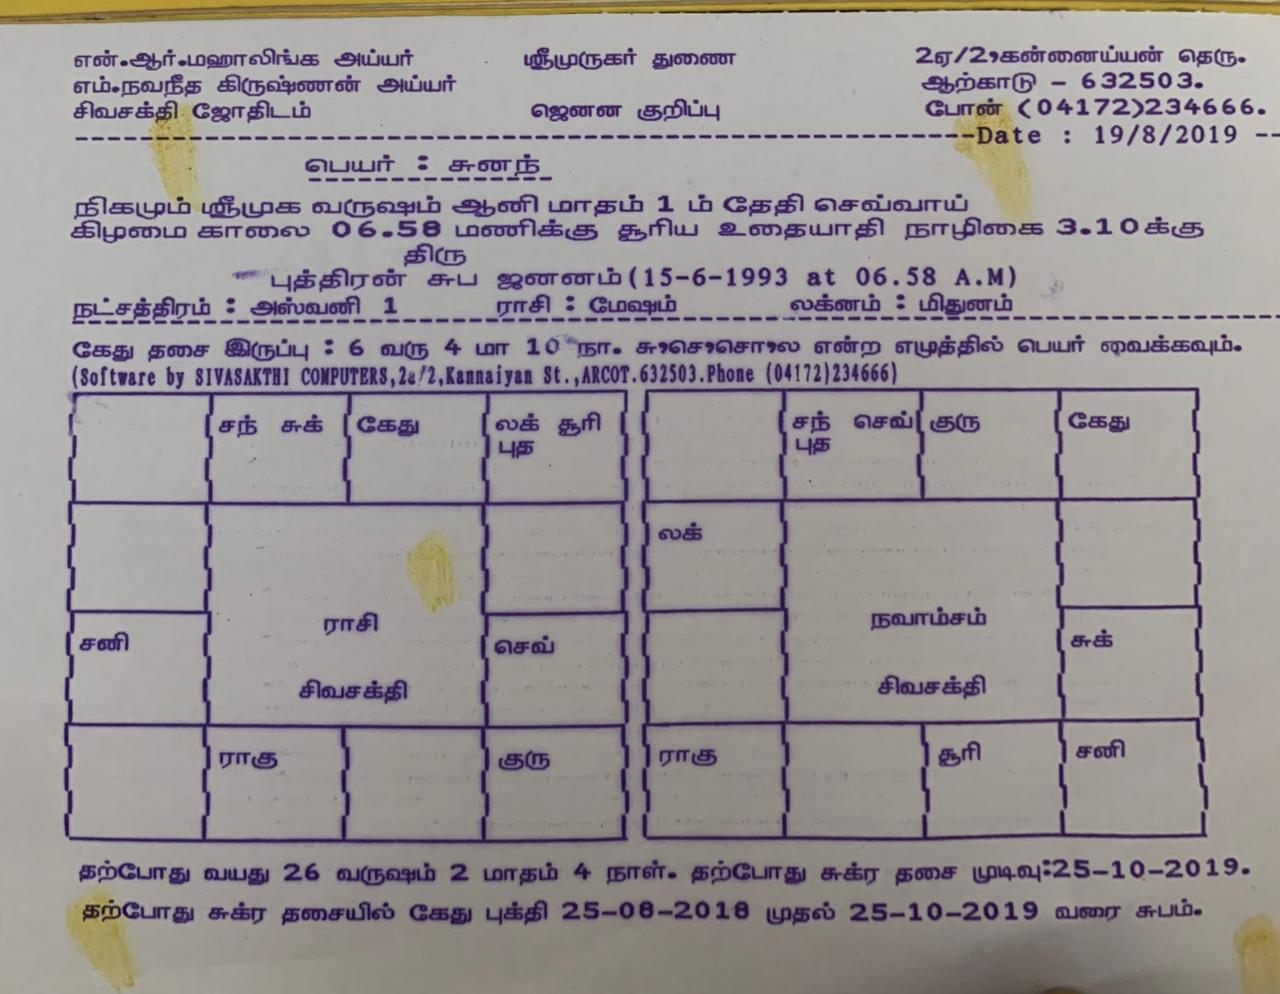 என்.ஆர்.மஹாலிங்க அய்யர் ஸ்ரீமுருகர் துணை 2ஏ/2,கன்னைய்யன் தெரு.
எம்.நவநீத கிருஷ்ணன் அய்யர் ஆற்காடு - 632503.
சிவசக்தி ஜோதிடம் ஜெனன குறிப்பு போன் (04172)234666.
Date : 19/8/2019
பெயர் : சுனந்
நிகமும் ஸ்ரீமுக வருஷம் ஆனி மாதம் 1 ம் தேதி செவ்வாய்
கிழமை காலை 06.58 மணிக்கு சூரிய உதையாதி நாழிகை 3.10க்கு
திரு
புத்திரன் சுப ஜனனம்(15-6-1993 at 06.58 A.M)
நட்சத்திரம் : அஸ்வனி 1 ராசி : மேஷம் லக்னம் : மிதுனம்
கேது தசை இருப்பு : 6 வரு 4 மா 10 நா. சு,செ,சொ,ல என்ற எழுத்தில் பெயர் வைக்கவும்.
(Software by SIVASAKTHI COMPUTERS,2a/2,Kannaiyan St.,ARCOT.632503.Phone (04172)234666)
சந் சுக் கேது லக் சூரி
புத
சனி
ராசி
செவ்
சிவசக்தி
ராகு குரு
சந் செவ் குரு கேது
புத
லக்
நவாம்சம்
சுக்
சிவசக்தி
ராகு சூரி சனி
தற்போது வயது 26 வருஷம் 2 மாதம் 4 நாள். தற்போது சுக்ர தசை முடிவு:25-10-2019.
தற்போது சுக்ர தசையில் கேது புக்தி 25-08-2018 முதல் 25-10-2019 வரை சுபம்.